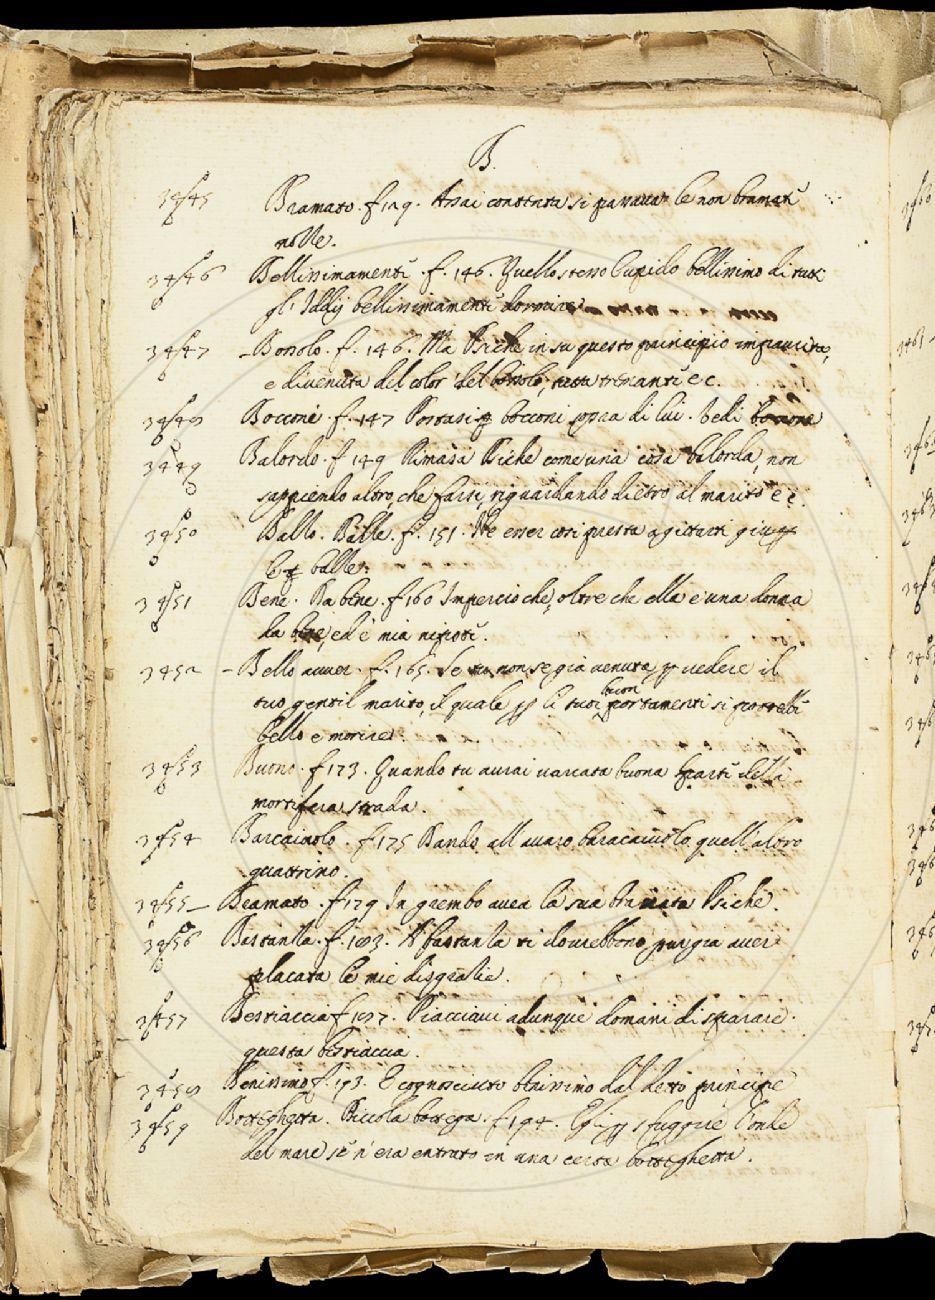 B.
3445 Bramato. f. 129. Assai contenta si pareva le non bramate
nolle.
3446 Bellissimamente. f. 146. Quello stesso Cupido bellissimo di tutt
gl' Iddij bellissimamente dormire
3447 - Bossolo. f. 146. Ma Psiche in su questo principio impaurita,
e divenuta del color del bossolo, tutta tremante e c.
3448 Boccone. f. 147 bocconi sopra di lui. Vedi boccone
3449 Balordo. f. 149 Rimasa Psiche come una cosa balorda, non
sappiendo altro, che farsi, riguardando dietro al marito e c.
3450 Balle. f. 151. Ne esser così presta a gittarti giu p
le balle.
3451 Bene. Da bene. f. 160 Impercioche, oltre che ella è una donna
da bene, ed è mia nipote.
3452 - Bello avver. f. 165. Se tu non se già venuta p vedere il
tuo gentil marito, il quale p li tuoi buon portamenti si potrebbe
bello e morire
3453 Buono. f. 173. Quando tu aurai varcata buona parte della
mortifera strada.
3454 Barcaivolo. f. 175 Dando all'avaro barcaivolo quell'altro
quattrino.
3455 - Beamato. f. 179 In grembo avea la sua Psiche.
3456 Bastanza. f. 183. A bastanza ti dovrebbono pur già aver
placata le mie disgrazie.
3457 Bestiaccia f. 187. Piacciavi adunque domani di sparare
questa bestiaccia.
3458 Benissimo f. 193. E cognosciuto benissimo dal detto principe
3459 Botteghetta. Piccola bottega. f. 194. p sfuggire l'onde
del mare se n'era entrato in una certa botteghetta.